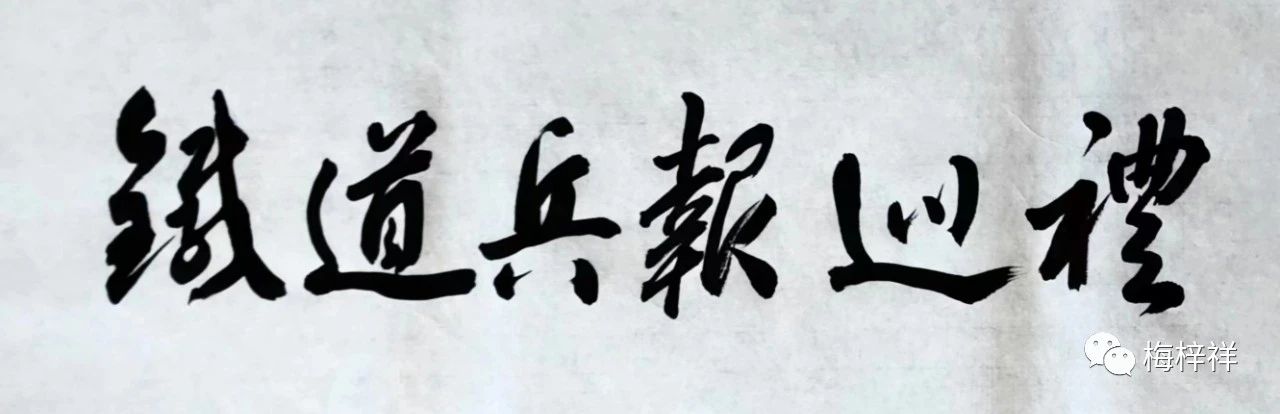 鐵道兵報巡禮
梅梓祥